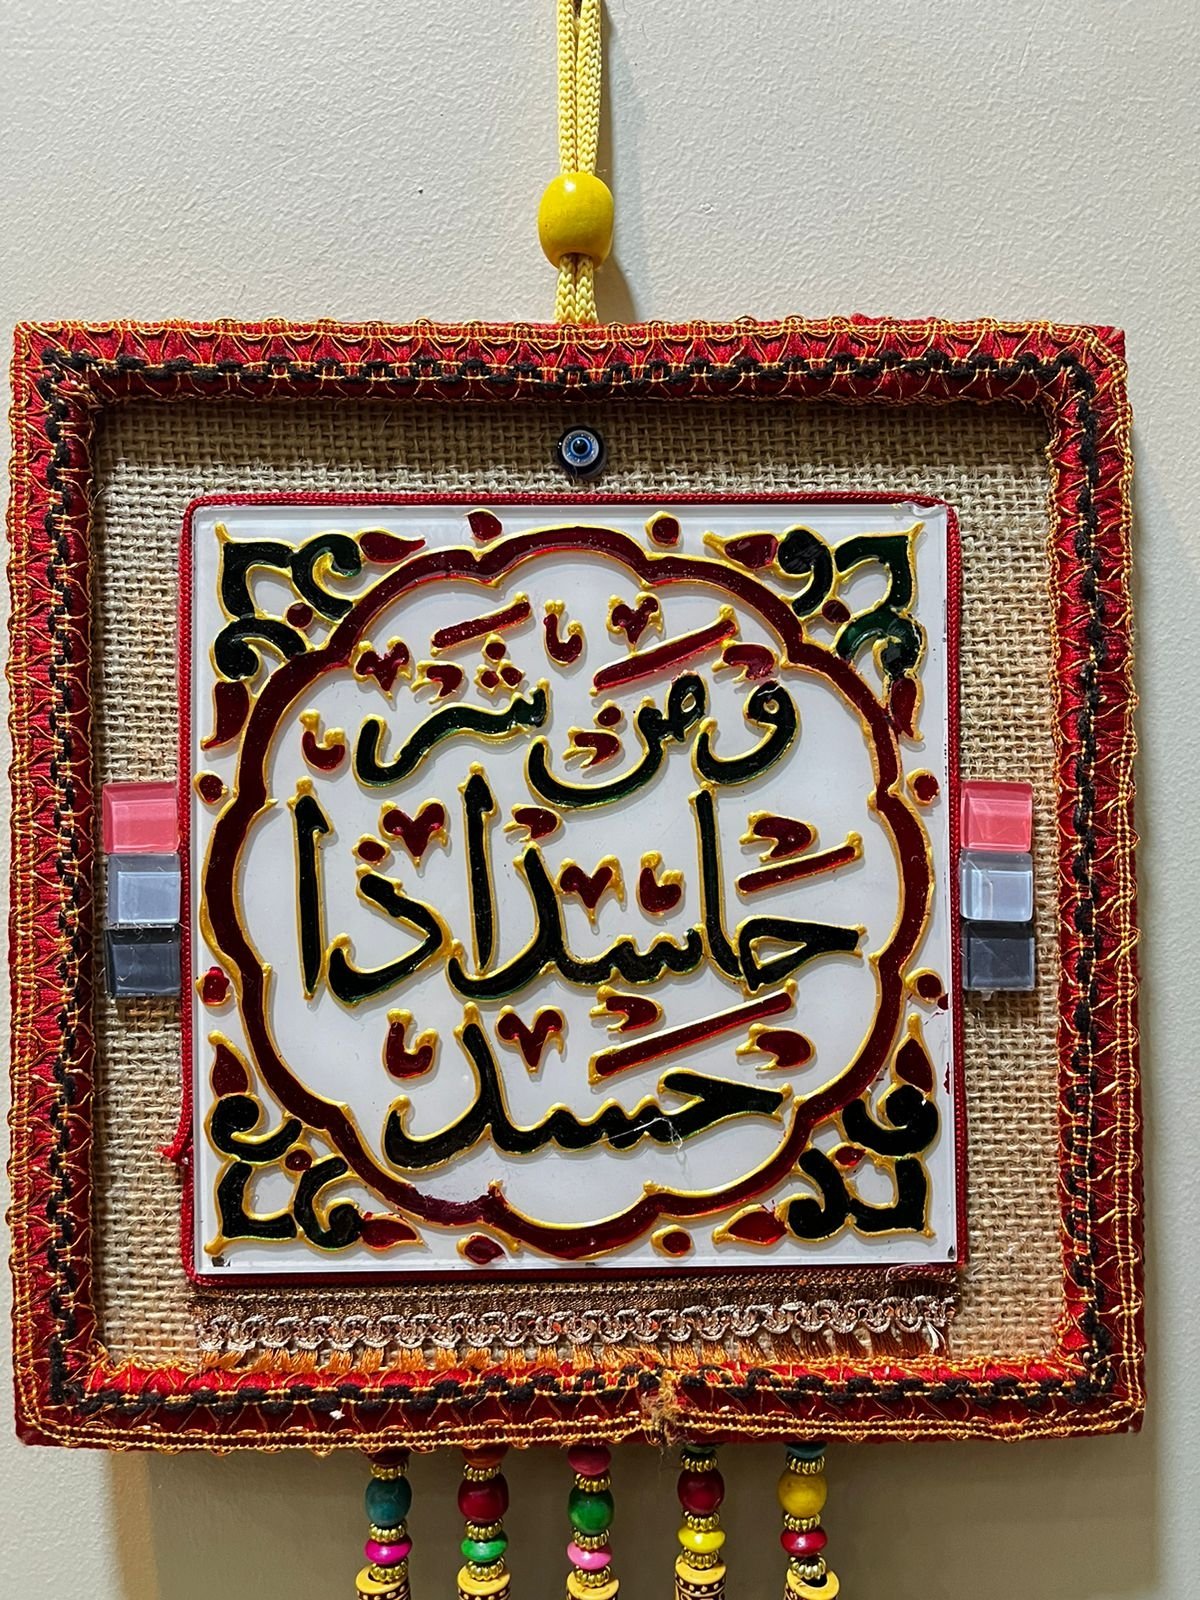 ومن شر
حاسد اذا
حسد